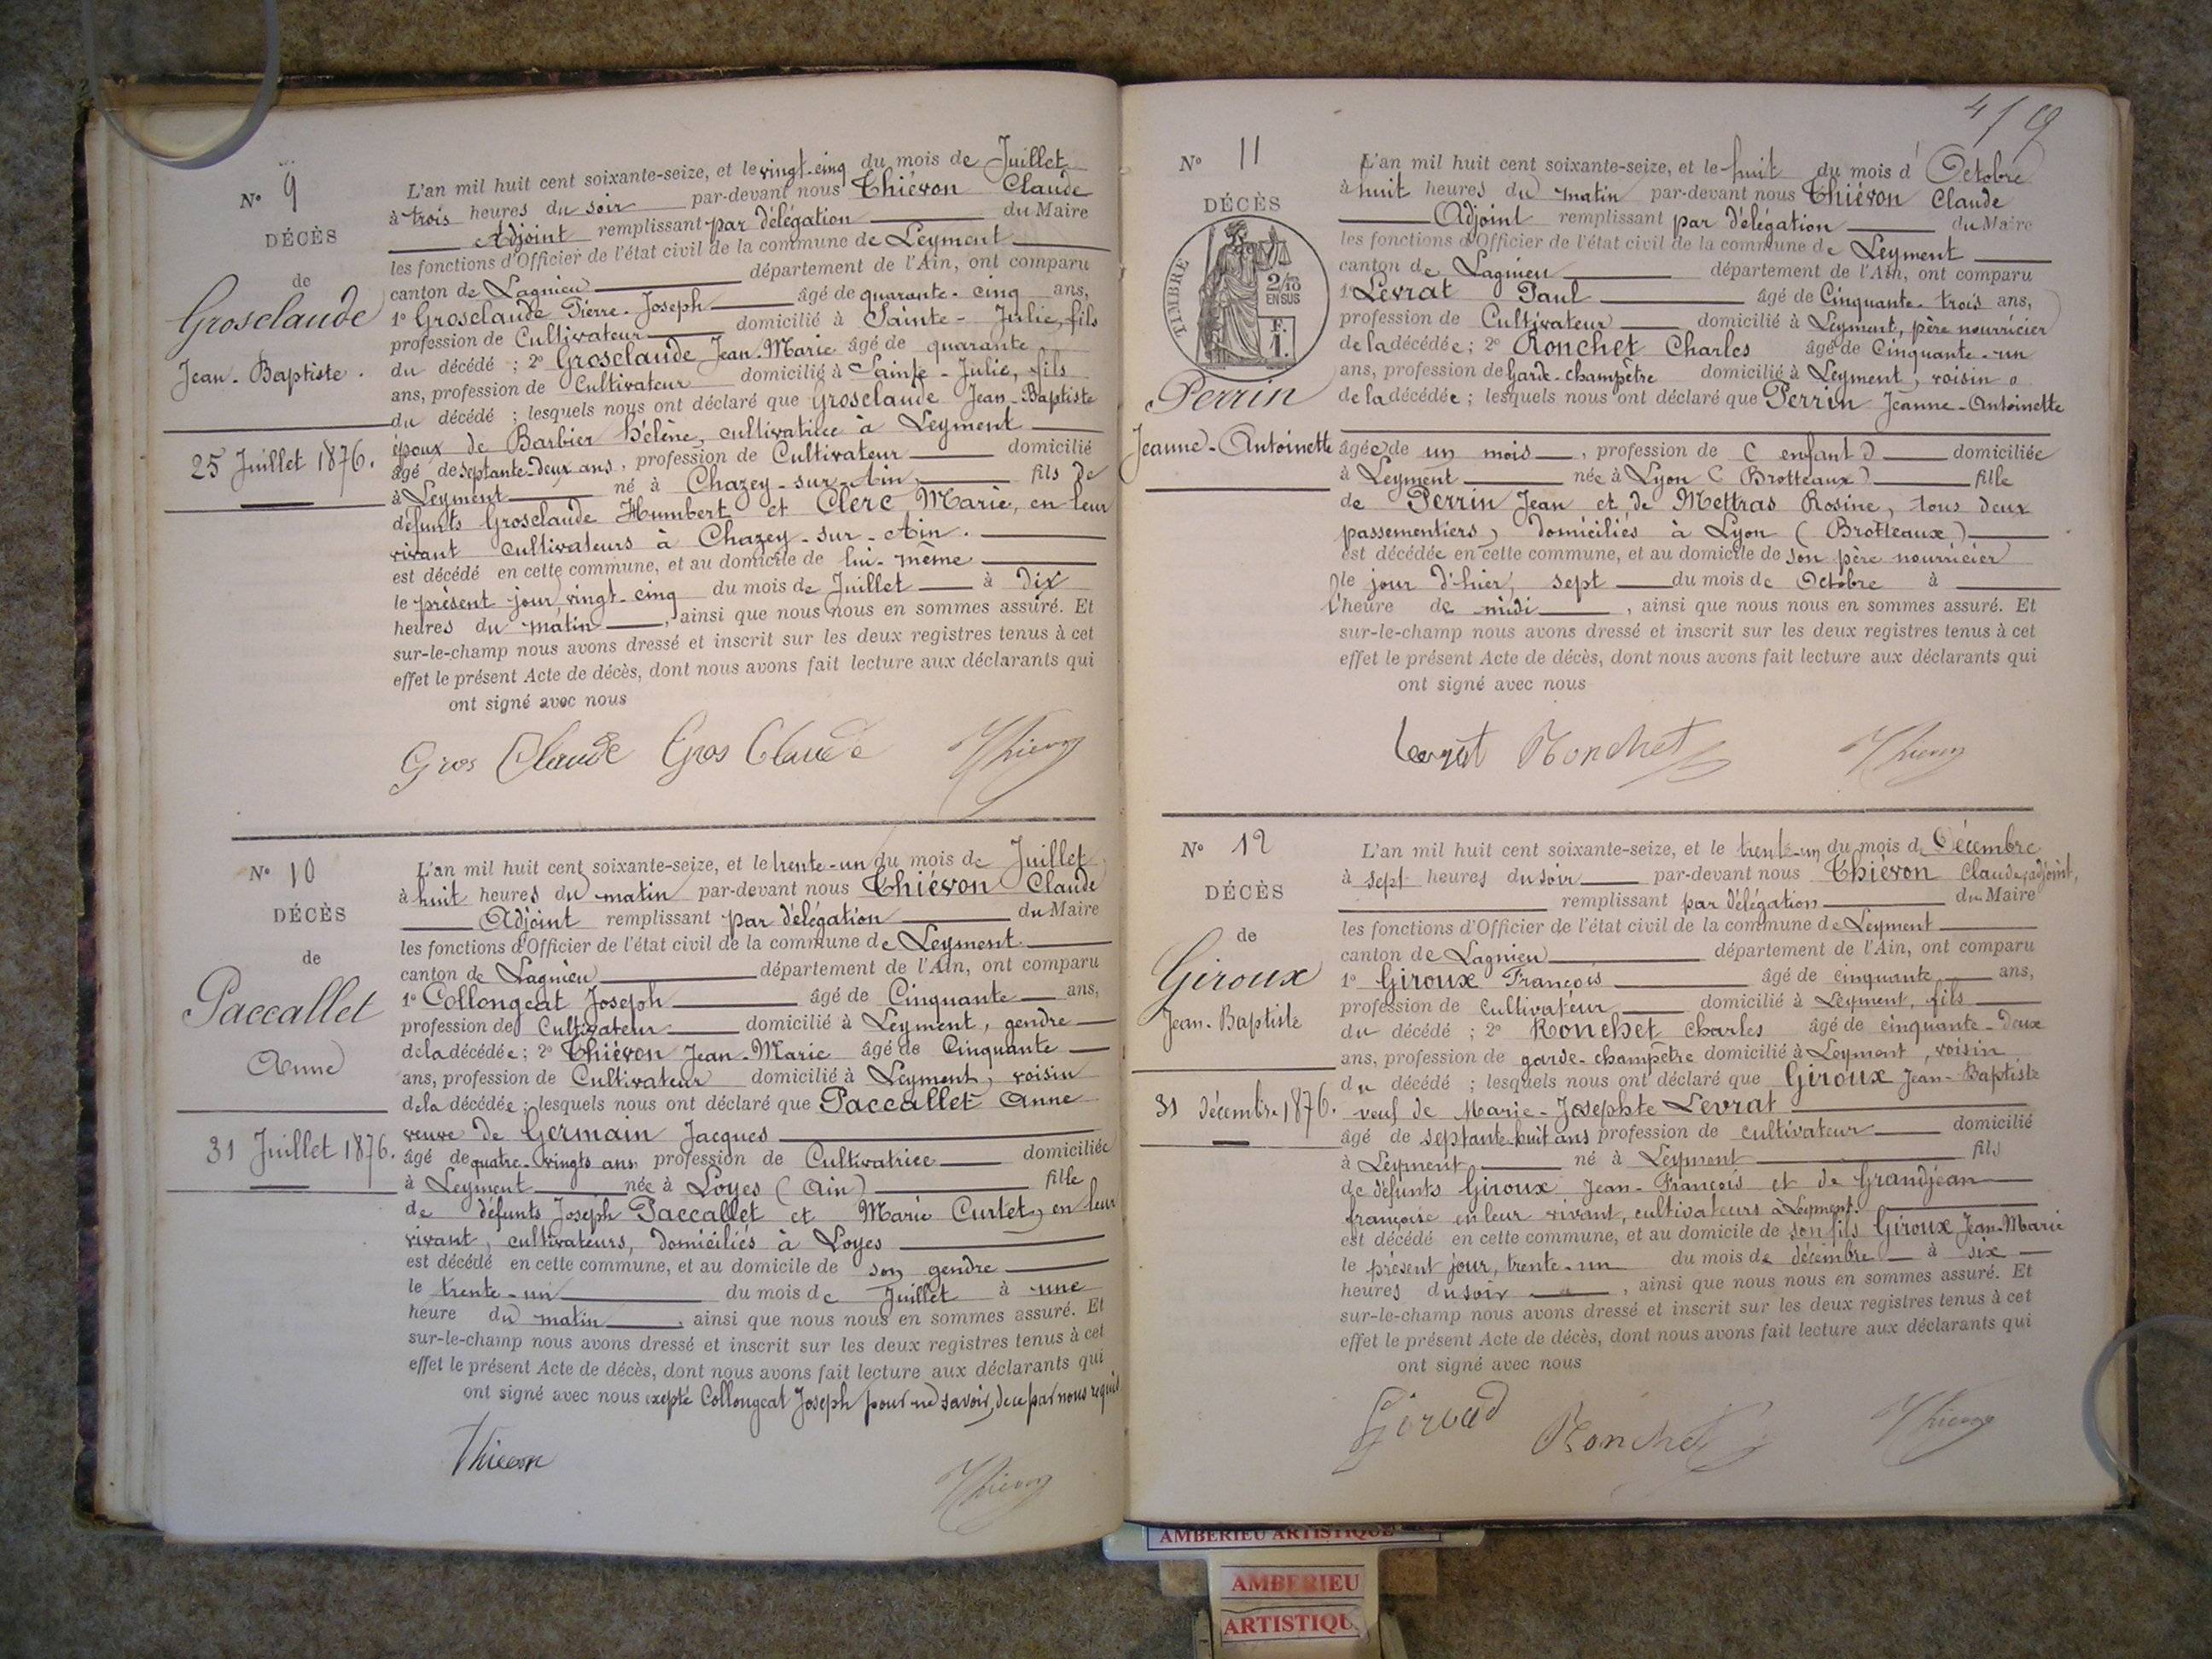 N° 9
DÉCÈS
de
Grosclaude
Jean-Baptiste.
25 Juillet 1876.
L'an mil huit cent soixante-seize, et le vingt-cinq du mois de Juillet
à trois heures du soir par-devant nous Thiévon Claude
Adjoint remplissant par délégation du Maire
les fonctions d'Officier de l'état civil de la commune de Leyment
canton de Lagnieu département de l'Ain, ont comparu
1° Grosclaude Pierre-Joseph âgé de quarante-cinq ans,
profession de Cultivateur domicilié à Sainte-Julie, fils
du décédé ; 2° Grosclaude Jean-Marie âgé de quarante
ans, profession de Cultivateur domicilié à Sainte-Julie, fils
du décédé ; lesquels nous ont déclaré que Grosclaude Jean-Baptiste
époux de Barbier Hélène, cultivatrice à Leyment
âgé de septante-deux ans, profession de Cultivateur domicilié
à Leyment né à Chazey-sur-Ain, fils de
défunts Grosclaude Humbert et Clerc Marie, en leur
vivant cultivateurs à Chazey-sur-Ain.
est décédé en cette commune, et au domicile de lui-même
le présent jour vingt-cinq du mois de Juillet à dix
heures du matin, ainsi que nous nous en sommes assuré. Et
sur-le-champ nous avons dressé et inscrit sur les deux registres tenus à cet
effet le présent Acte de décès, dont nous avons fait lecture aux déclarants qui
ont signé avec nous
Gros Claude Gros Claude Thievon
N° 10
DÉCÈS
de
Paccallet
Anne
31 Juillet 1876.
L'an mil huit cent soixante-seize, et le trente-un du mois de Juillet
à huit heures du matin par-devant nous Thiévon Claude
Adjoint remplissant par délégation du Maire
les fonctions d'Officier de l'état civil de la commune de Leyment
canton de Lagnieu département de l'Ain, ont comparu
1° Collongeat Joseph âgé de Cinquante ans,
profession de Cultivateur domicilié à Leyment, gendre
de la décédée ; 2° Thiévon Jean-Marie âgé de Cinquante
ans, profession de Cultivateur domicilié à Leyment, voisin
de la décédée ; lesquels nous ont déclaré que Paccallet Anne
veuve de Germain Jacques
âgé de quatre-vingts ans profession de Cultivatrice domiciliée
à Leyment née à Loyes (Ain) fille
de défunts Joseph Paccallet et Marie Curtet, en leur
vivant, cultivateurs, domiciliés à Loyes
est décédé en cette commune, et au domicile de son gendre
le trente-un du mois de Juillet à une
heure du matin, ainsi que nous nous en sommes assuré. Et
sur-le-champ nous avons dressé et inscrit sur les deux registres tenus à cet
effet le présent Acte de décès, dont nous avons fait lecture aux déclarants qui
ont signé avec nous exepté Collongeat Joseph pour ne savoir, de ce par nous requis
Thievon Thievon
4/9
N° 11
DÉCÈS
TIMBRE
2/10
EN SUS
F.
1.
Perrin
Jeanne-Antoinette
L'an mil huit cent soixante-seize, et le huit du mois d'Octobre
à huit heures du matin par-devant nous Thiévon Claude
Adjoint remplissant par délégation du Maire
les fonctions d'Officier de l'état civil de la commune de Leyment
canton de Lagnieu département de l'Ain, ont comparu
1° Levrat Paul âgé de Cinquante-trois ans,
profession de Cultivateur domicilié à Leyment, père nourricier
de la décédée ; 2° Ronchet Charles âgé de Cinquante-un
ans, profession de Garde-champêtre domicilié à Leyment, voisin
de la décédée ; lesquels nous ont déclaré que Perrin Jeanne-Antoinette
âgée de un mois, profession de (enfant) domiciliée
à Leyment née à Lyon (Brotteaux) fille
de Perrin Jean et de Mettras Rosine, tous deux
passementiers, domiciliés à Lyon (Brotteaux)
est décédée en cette commune, et au domicile de son père nourricier
le jour d'hier, sept du mois de Octobre à
l'heure de midi, ainsi que nous nous en sommes assuré. Et
sur-le-champ nous avons dressé et inscrit sur les deux registres tenus à cet
effet le présent Acte de décès, dont nous avons fait lecture aux déclarants qui
ont signé avec nous
Levrat Ronchet Thievon
N° 12
DÉCÈS
de
Giroux
Jean-Baptiste
31 décembre 1876.
L'an mil huit cent soixante-seize, et le trente-un du mois de Décembre
à sept heures du soir par-devant nous Thiévon Claude, adjoint,
remplissant par délégation du Maire
les fonctions d'Officier de l'état civil de la commune de Leyment
canton de Lagnieu département de l'Ain, ont comparu
1° Giroux François âgé de cinquante ans,
profession de cultivateur domicilié à Leyment, fils
du décédé ; 2° Ronchet Charles âgé de cinquante-deux
ans, profession de garde-champêtre domicilié à Leyment, voisin
du décédé ; lesquels nous ont déclaré que Giroux Jean-Baptiste
veuf de Marie-Josephte Levrat
âgé de septante huit ans profession de cultivateur domicilié
à Leyment né à Leyment fils
de défunts Giroux Jean-François et de Grandjean
françoise en leur vivant, cultivateurs à Leyment.
est décédé en cette commune, et au domicile de son fils Giroux Jean-Marie
le présent jour, trente-un du mois de décembre à six
heures du soir, ainsi que nous nous en sommes assuré. Et
sur-le-champ nous avons dressé et inscrit sur les deux registres tenus à cet
effet le présent Acte de décès, dont nous avons fait lecture aux déclarants qui
ont signé avec nous
Ronchet Thievon
AMBERIEU ARTISTIQUE
AMBERIEU
ARTISTIQU